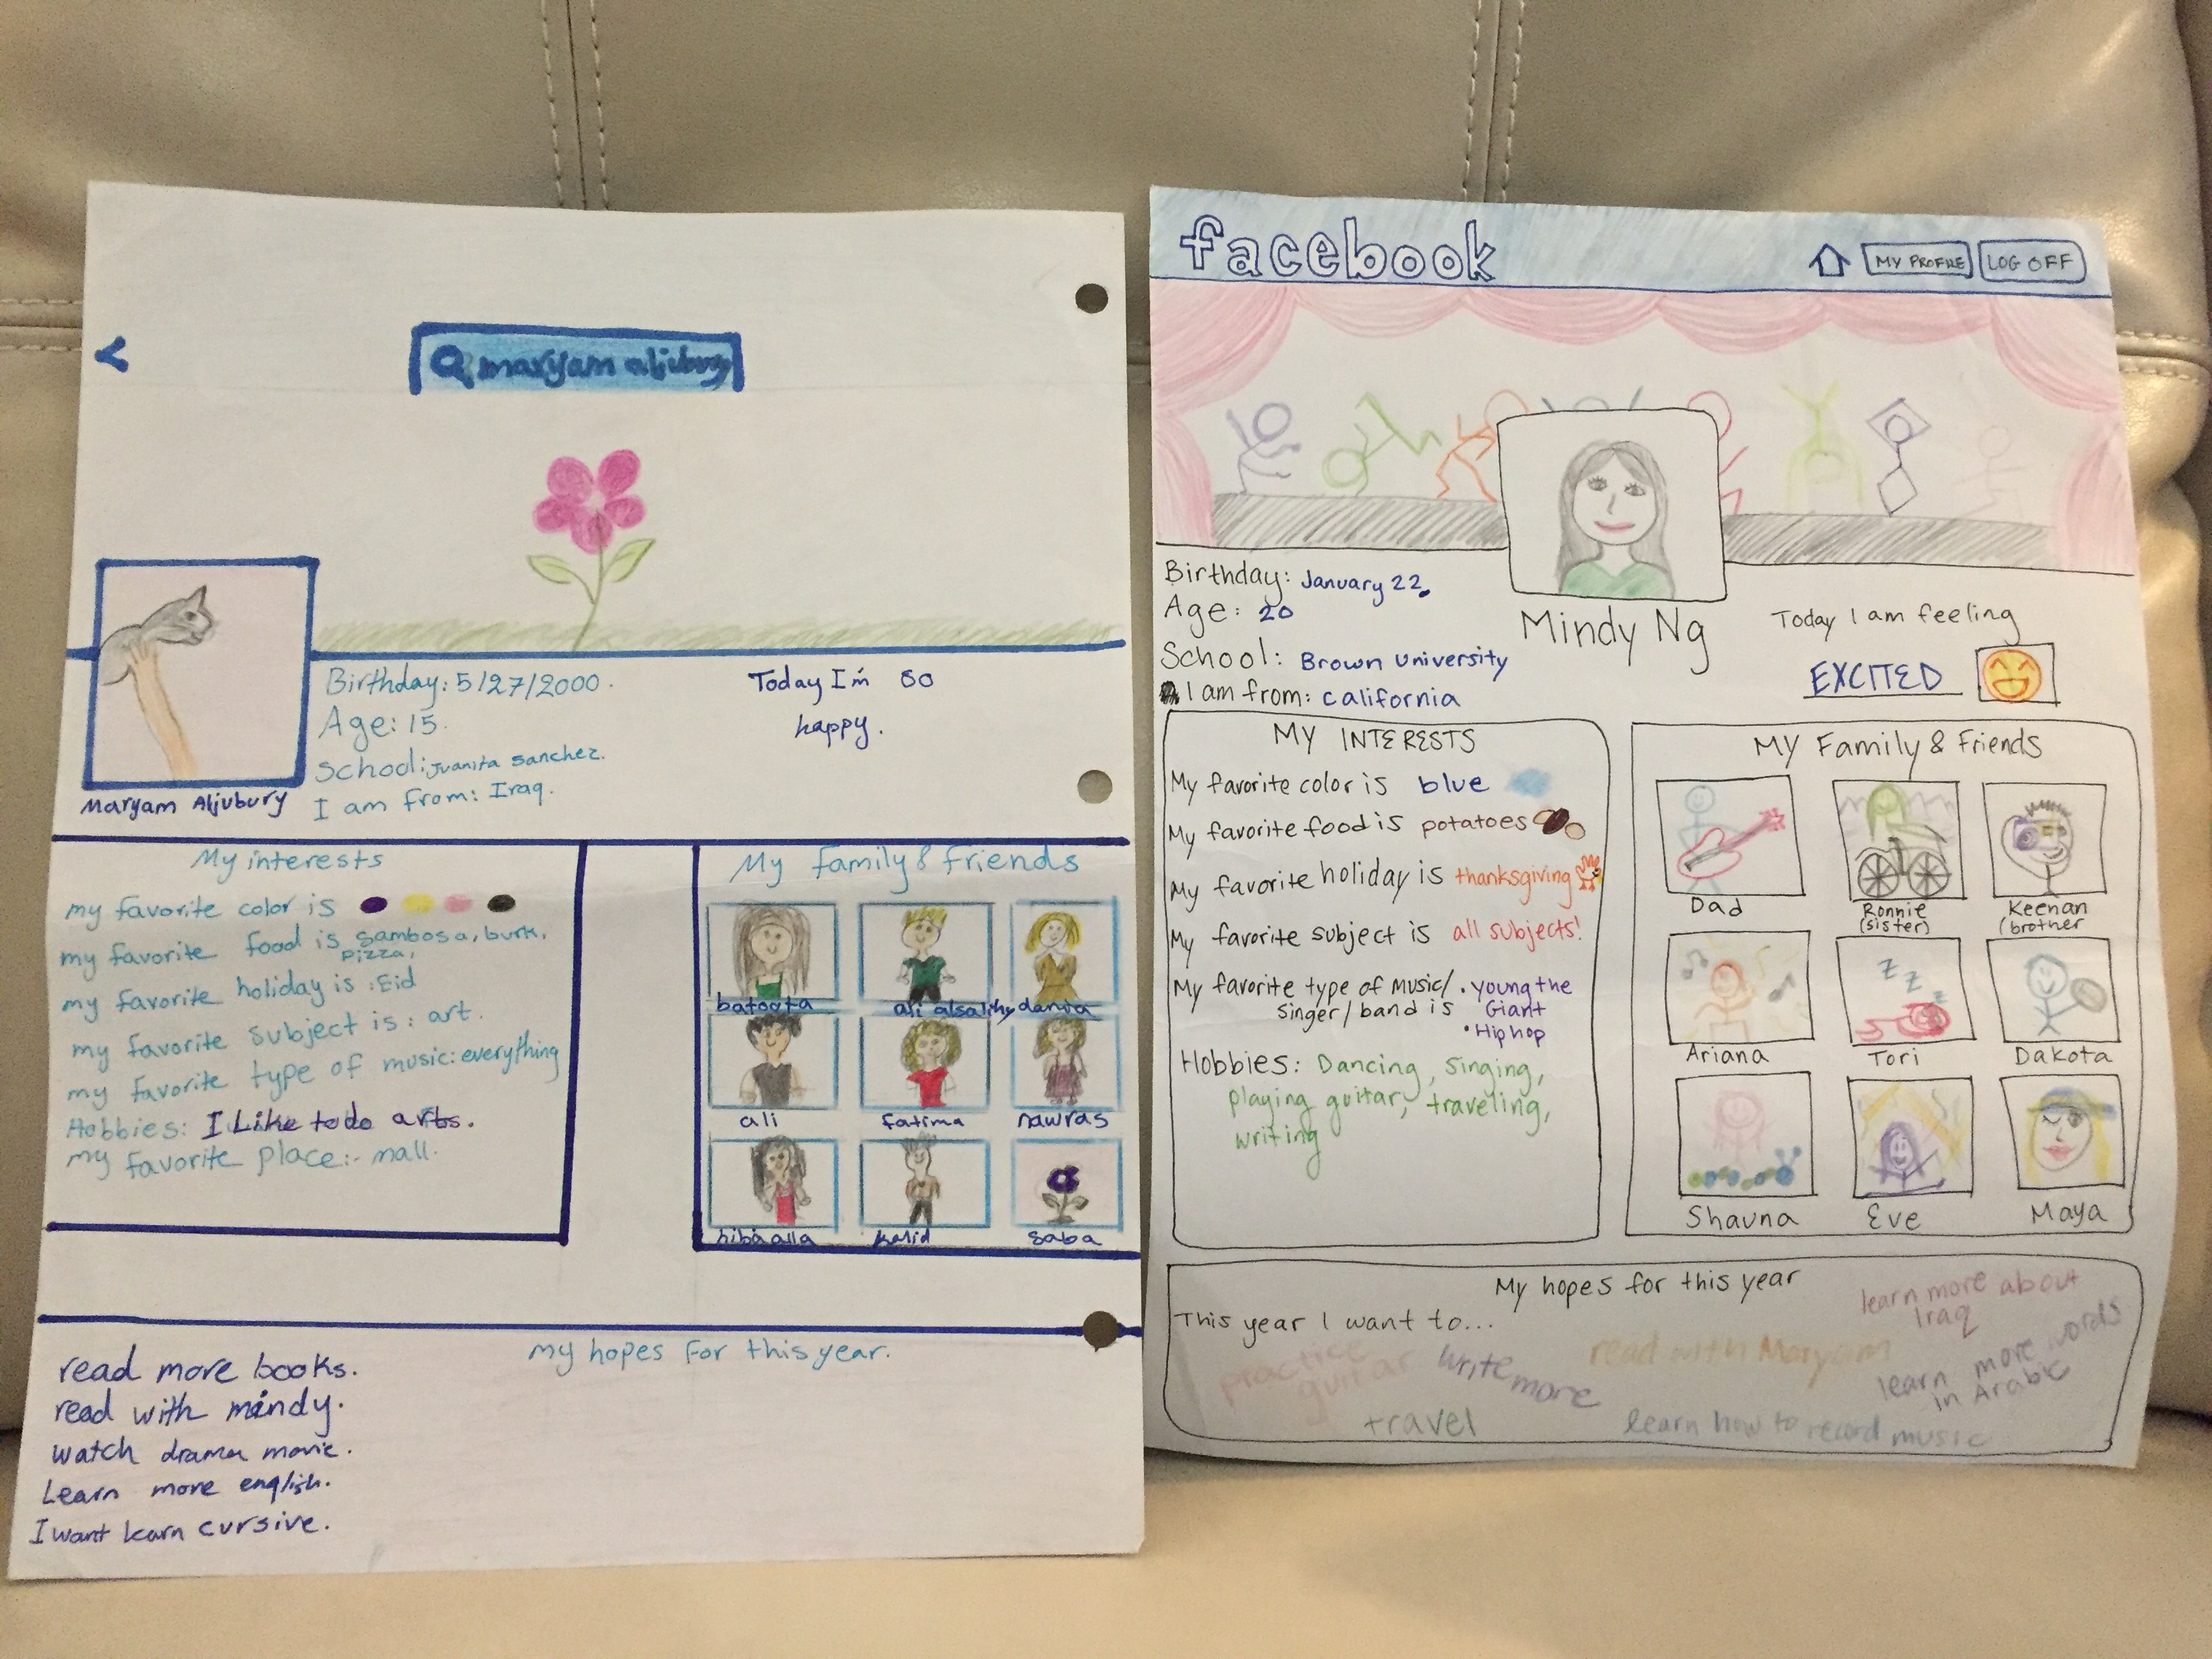 maryam aljubury
Maryam Aljubury
Birthday: 5/27/2000.
Age: 15.
School: Juanita Sanchez.
I am from: Iraq.
Today I'm so
happy.
My interests
my favorite color is
my favorite food is sambosa, burk,
pizza,
my favorite holiday is : Eid
my favorite subject is : art.
my favorite type of music: everything
Hobbies: I Like to do arts.
my favorite place:- mall.
My family & friends
batoota
ali alsalihy
dania
ali
fatima
nawras
hibaalla
kalid
saba
my hopes for this year.
read more books.
read with mindy.
watch drama movie.
Learn more english.
I want learn cursive.
facebook
MY PROFILE
LOG OFF
Birthday: January 22.
Age: 20
School: Brown University
I am from: California
Mindy Ng
Today I am feeling
EXCITED
MY INTERESTS
My favorite color is blue
My favorite food is potatoes
My favorite holiday is thanksgiving
My favorite subject is all subjects!
My favorite type of music/ • young the
singer/band is Giant
• Hip hop
Hobbies: Dancing, singing,
playing guitar, traveling,
writing
MY Family & Friends
Dad
Ronnie
(sister)
Keenan
(brother
Ariana
Z Z Z
Tori
Dakota
Shauna
Eve
Maya
My hopes for this year
This year I want to...
learn more about
Iraq
practice
guitar
write
more
read with Maryam
learn more words
in Arabic
travel
learn how to record music